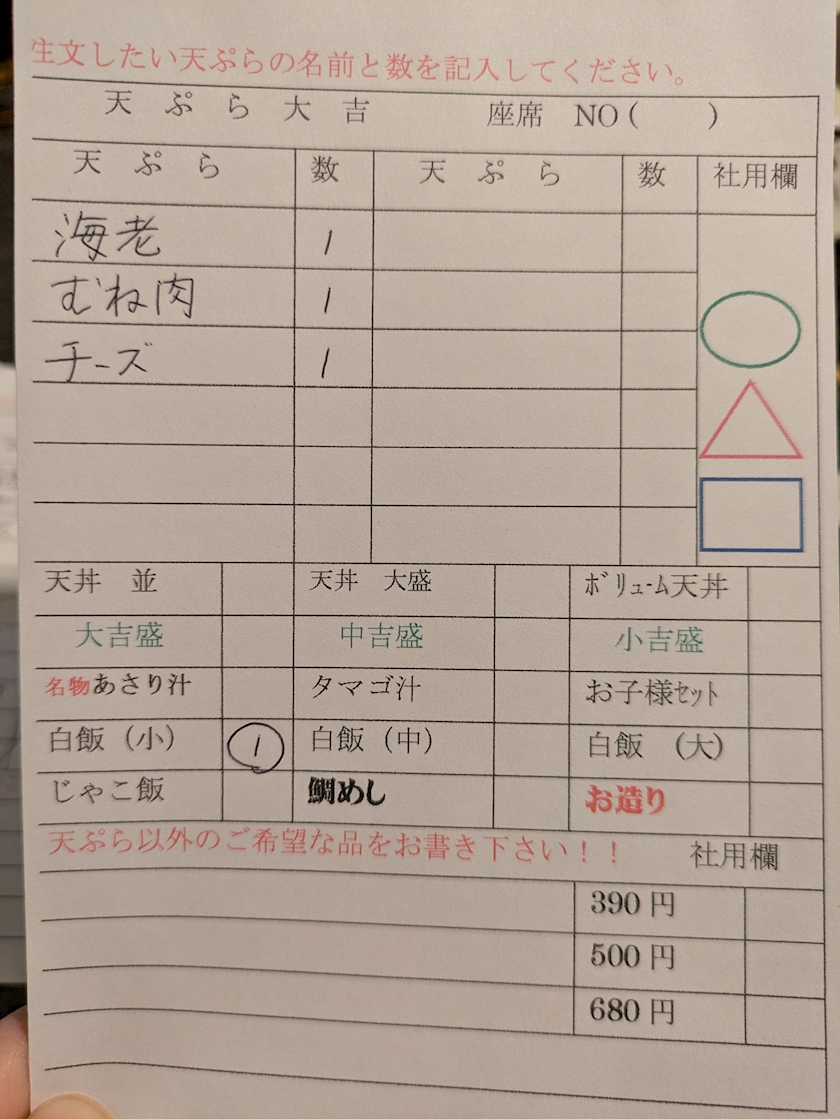 注文したい天ぷらの名前と数を記入してください。
天ぷら大吉 座席 NO( )
天ぷら 数 天ぷら 数 社用欄
海老 1
むね肉 1
チーズ 1
天丼 並 天丼 大盛 ボリューム天丼
大吉盛 中吉盛 小吉盛
名物あさり汁 タマゴ汁 お子様セット
白飯(小) 1 白飯(中) 白飯 (大)
じゃこ飯 鯛めし お造り
天ぷら以外のご希望な品をお書き下さい!! 社用欄
390円
500円
680円